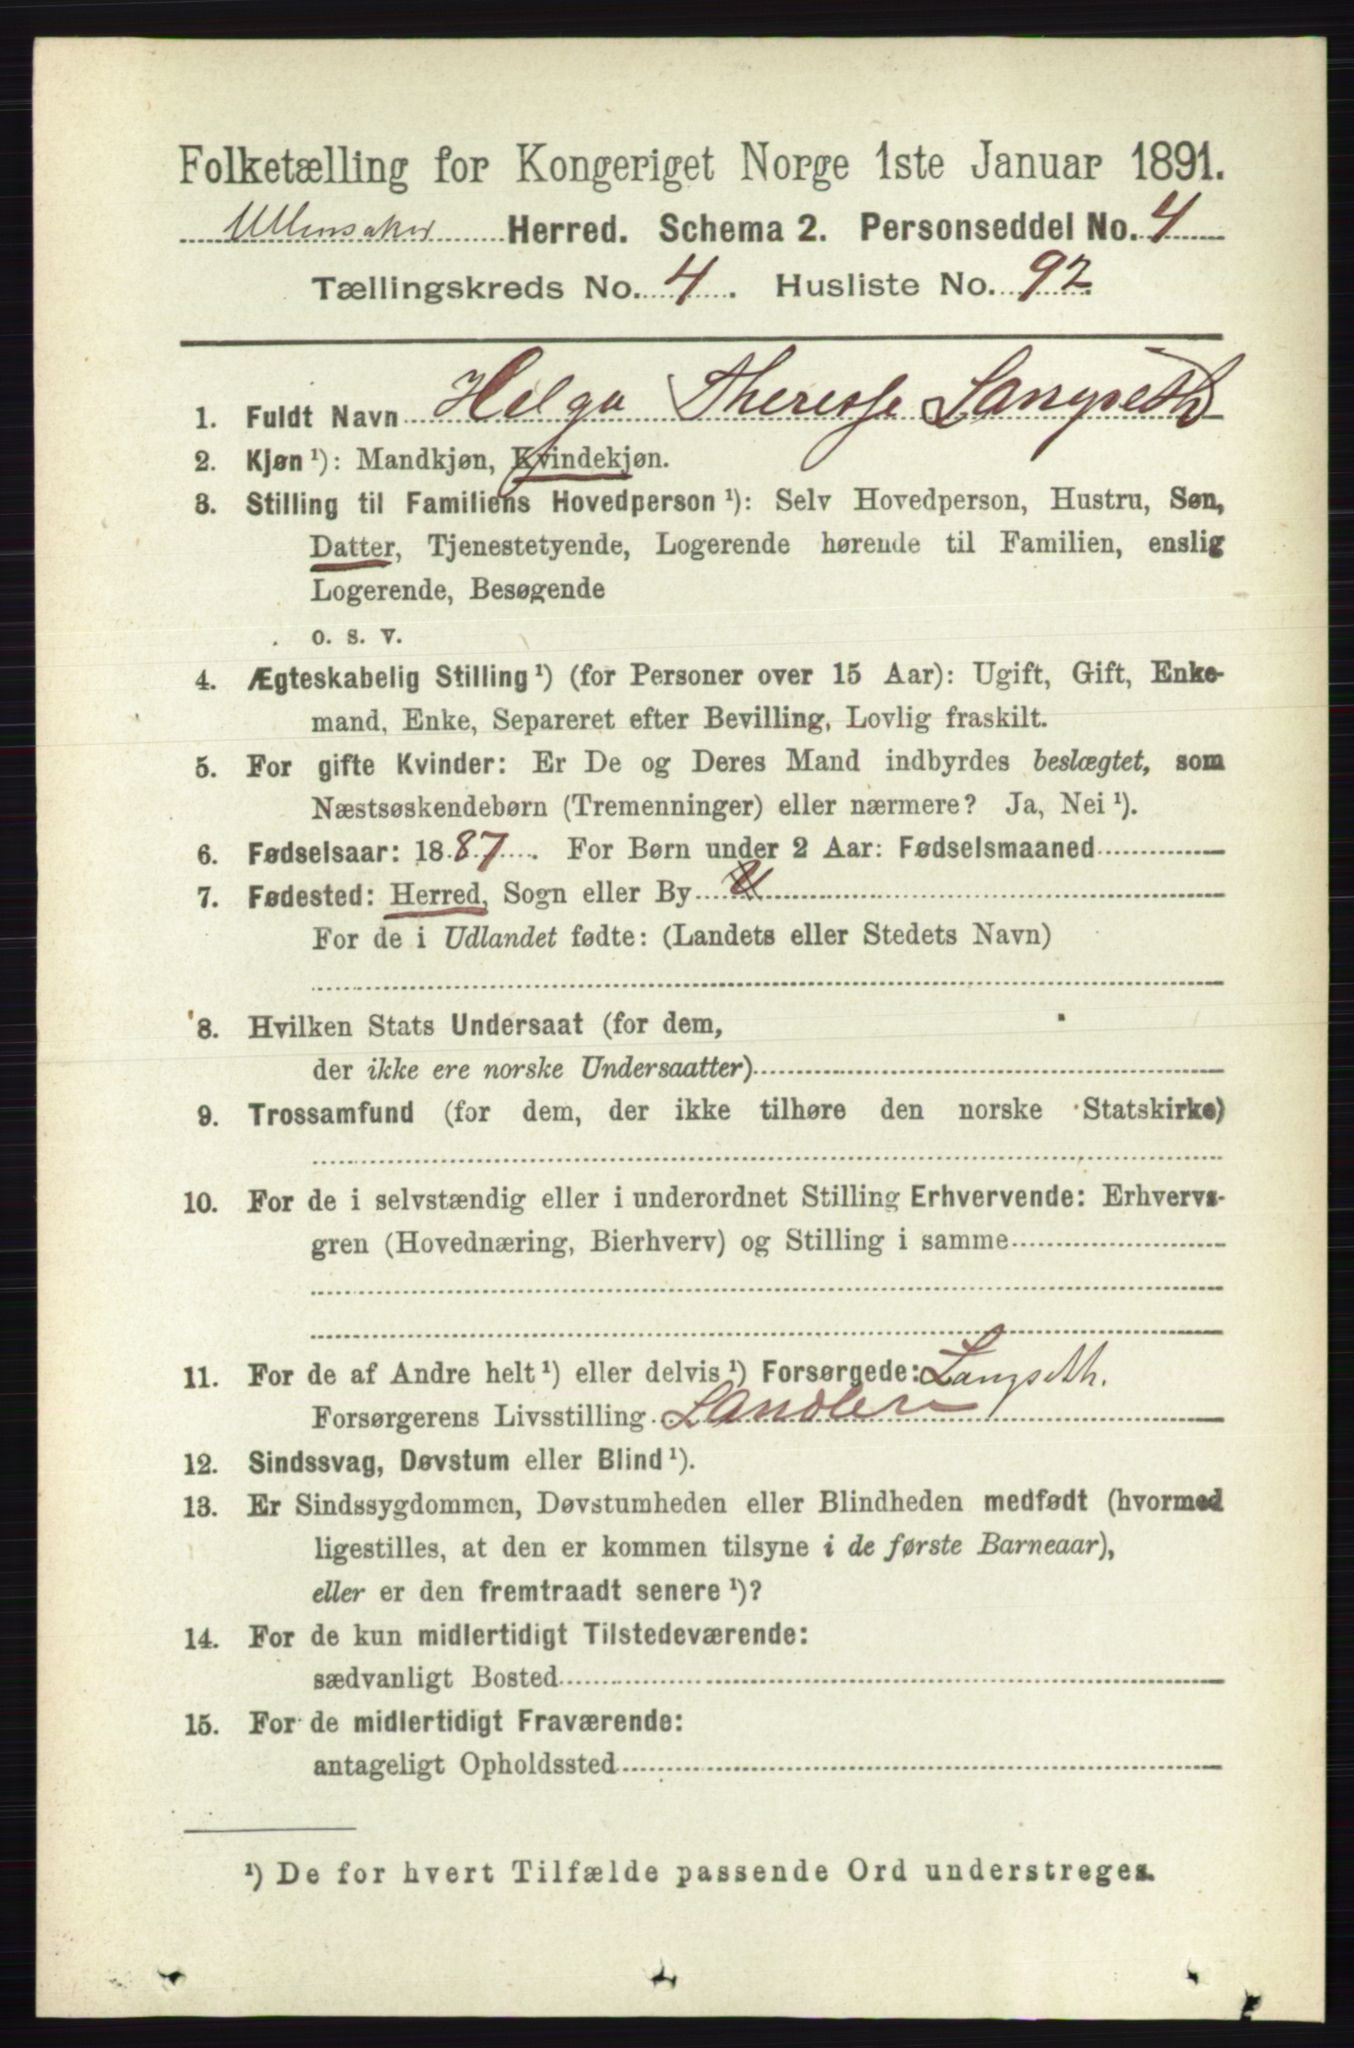 Folketælling for Kongeriget Norge 1ste Januar 1891.
Ullensaker Herred. Schema 2. Personseddel No. 4
Tællingskreds No. 4. Husliste No. 92.
1. Fuldt Navn Helga Theresse Langseth
2. Kjøn ¹): Mandkjøn, Kvindekjøn.
3. Stilling til Familiens Hovedperson ¹): Selv Hovedperson, Hustru, Søn,
Datter, Tjenestetyende, Logerende hørende til Familien, enslig
Logerende, Besøgende
o. s. v.
4. Ægteskabelig Stilling ¹) (for Personer over 15 Aar): Ugift, Gift, Enke-
mand, Enke, Separeret efter Bevilling, Lovlig fraskilt.
5. For gifte Kvinder: Er De og Deres Mand indbyrdes beslægtet, som
Næstsøskendebørn (Tremenninger) eller nærmere? Ja, Nei ¹).
6. Fødselsaar: 1887. For Børn under 2 Aar: Fødselsmaaned
7. Fødested: Herred, Sogn eller By
For de i Udlandet fødte: (Landets eller Stedets Navn)
8. Hvilken Stats Undersaat (for dem,
der ikke ere norske Undersaatter)
9. Trossamfund (for dem, der ikke tilhøre den norske Statskirke)
10. For de i selvstændig eller i underordnet Stilling Erhvervende: Erhvervs-
gren (Hovednæring, Bierhverv) og Stilling i samme
11. For de af Andre helt ¹) eller delvis ¹) Forsørgede: Langseth.
Forsørgerens Livsstilling
12. Sindssvag, Døvstum eller Blind ¹).
13. Er Sindssygdommen, Døvstumheden eller Blindheden medfødt (hvormed
ligestilles, at den er kommen tilsyne i de første Barneaar),
eller er den fremtraadt senere ¹)?
14. For de kun midlertidigt Tilstedeværende:
sædvanligt Bosted
15. For de midlertidigt Fraværende:
antageligt Opholdssted
¹) De for hvert Tilfælde passende Ord understreges.